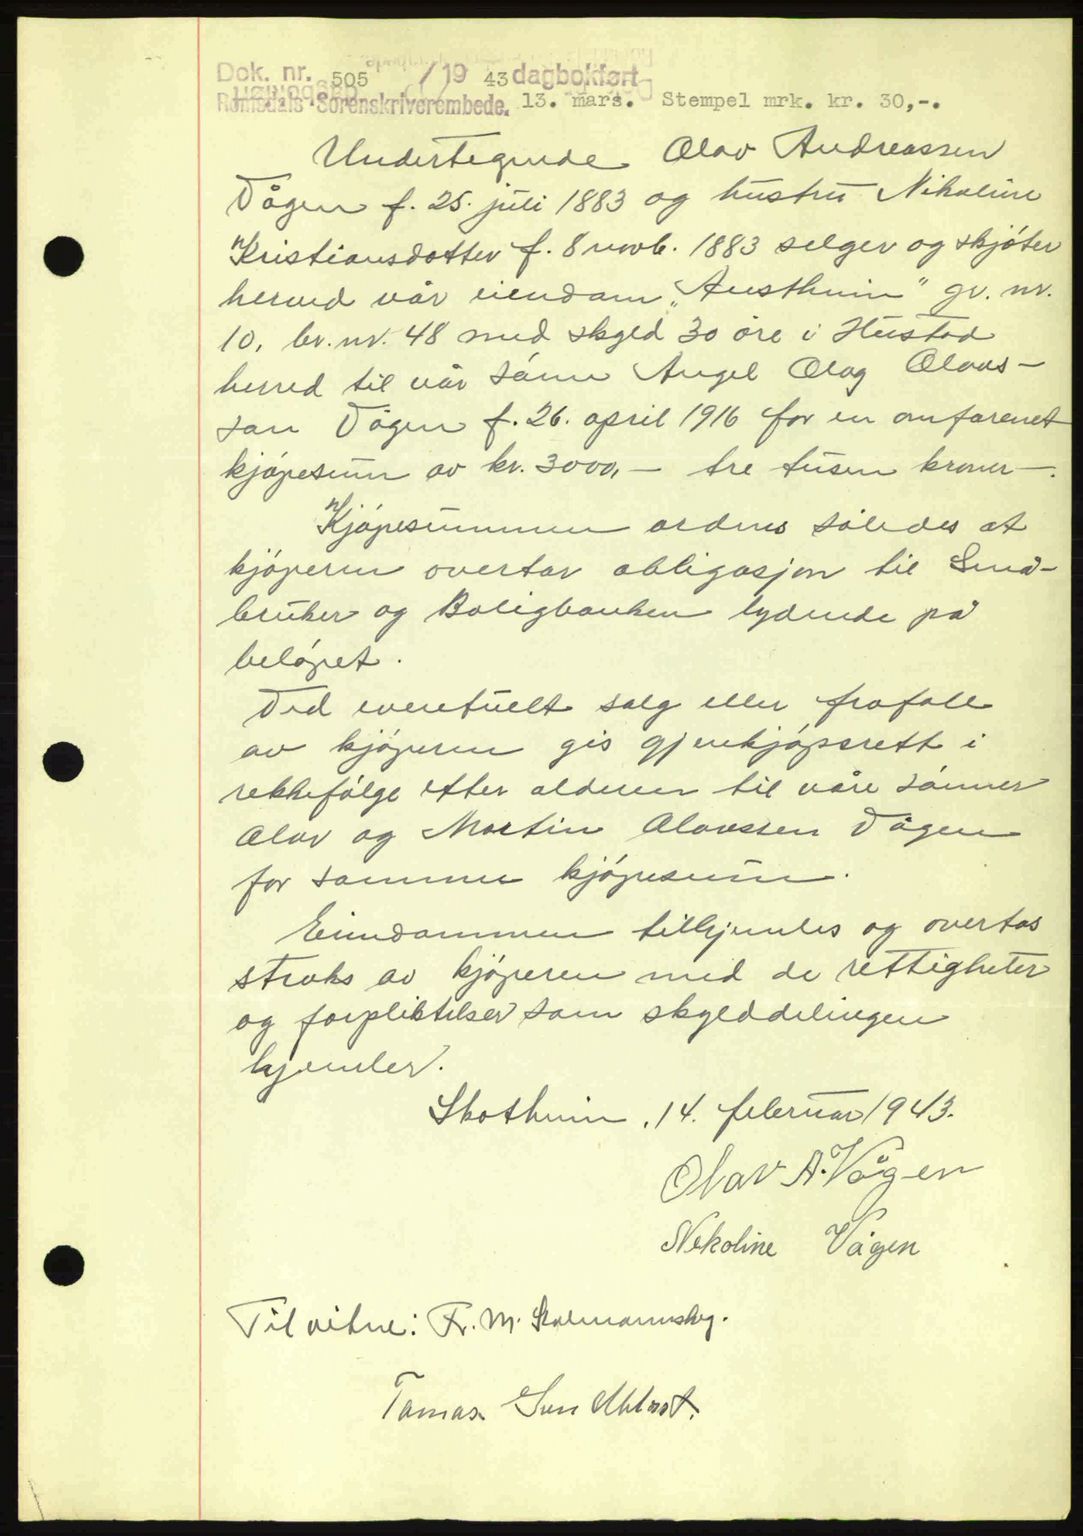 Dok. nr. 505 / 19 43 dagbokført
Romsdals Sorenskriverembede. 13. mars. Stempel mrk. kr. 30,-.
Undertegnede Olav Andreassen
Vågen f. 25. juli 1883 og hustru Nikoline
Kristiansdotter f. 8 novb. 1883 selger og skjøter
herved vår eiendom "Austheim" gr. nr.
10, br. nr. 48 med skyld 30 øre i Hustad
herred til vår sønn Angel Olag Olavs-
son Vågen f. 26. april 1916 for en omforenet
kjøpesum av kr. 3000,- tre tusen kroner-.
Kjøpesummen ordnes således at
kjøperen overtar obligasjon til Små-
bruker og Boligbanken lydende på
beløpet.
Ved eventuelt salg eller frafall
av kjøperen gis gjenkjøpsrett i
rekkefølge etter alderen til våre sønner
Olav og Martin Olavssen Vågen
for samme kjøpesum.
Eiendommen tilhjemles og overtas
straks av kjøperen med de rettigheter
og forpliktelser som skylddelingen
hjemler.
Skotheim, 14. februar 1943.
Olav A. Vågen
Nekoline Vågen
Til vitne: Fr. M.
Tomas